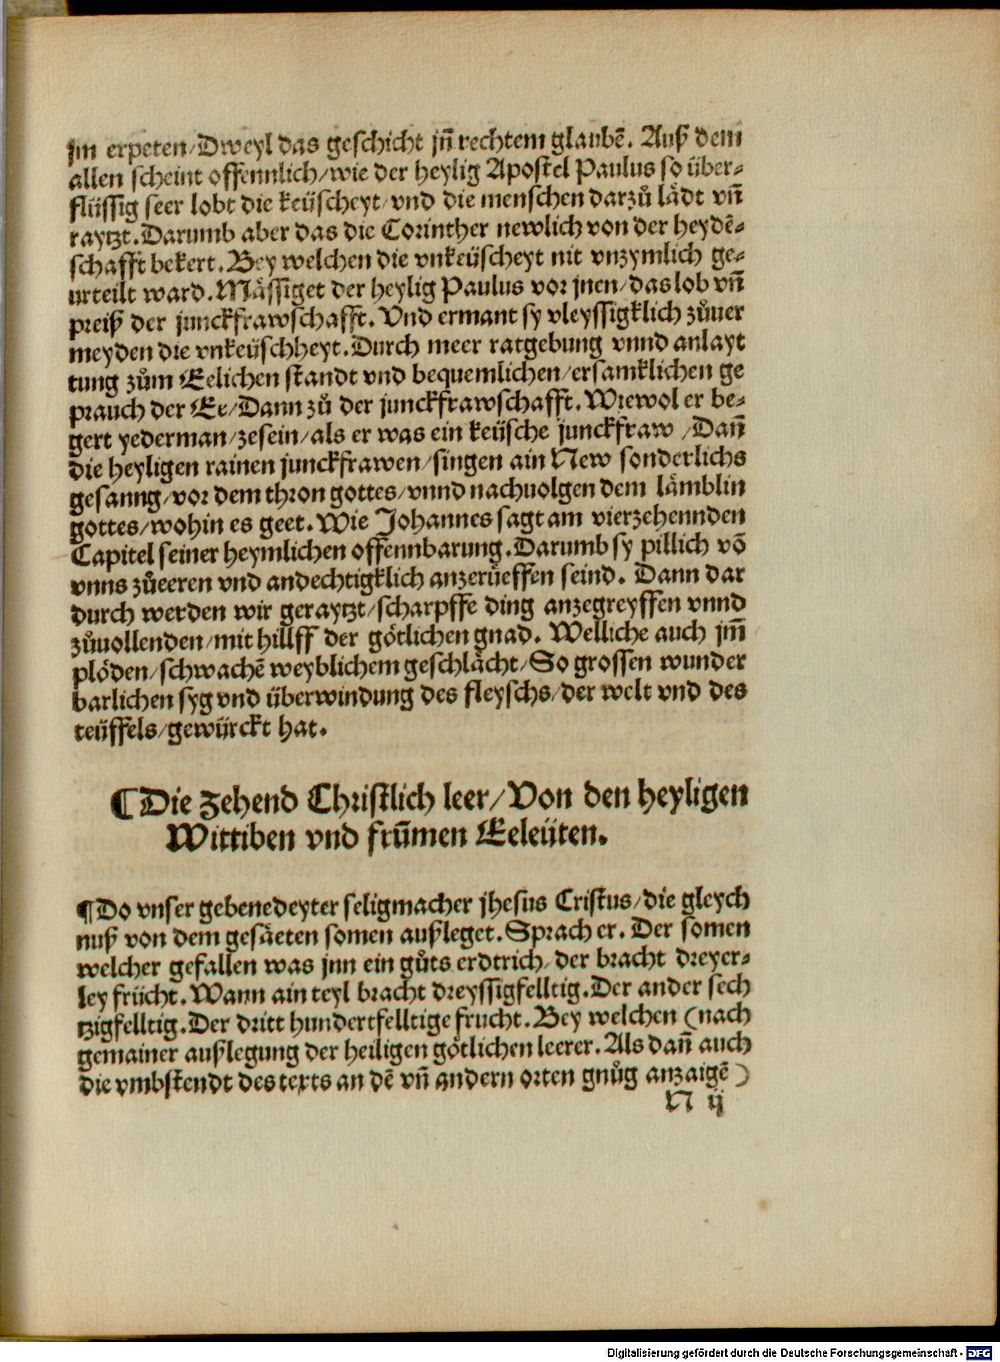 jm erpeten/Dweyl das geschicht jn̄ rechtem glaubē. Auß dem
allen scheint offennlich/wie der heylig Apostel Paulus so über-
flüssig seer lobt die keüscheyt/vnd die menschen darzů lädt vn̄
raytzt. Darumb aber das die Corinther newlich von der heydē-
schafft bekert. Bey welchen die vnkeüscheyt nit vnzymlich ge-
urteilt ward. Mässiget der heylig Paulus vor jnen/das lob vn̄
preiß der junckfrawschafft. Vnd ermant sy vleyssigklich zůuer
meyden die vnkeüschheyt. Durch meer ratgebung vnnd anlayt
tung zům Eelichen standt vnd bequemlichen/ersamklichen ge
prauch der Ee/Dann zů der junckfrawschafft. Wiewol er be-
gert yederman/zesein/als er was ein keüsche junckfraw/Dan̄
die heyligen rainen junckfrawen/singen ain New sonderlichs
gesanng/vor dem thron gottes/vnnd nachuolgen dem lämblin
gottes/wohin es geet. Wie Johannes sagt am vierzehennden
Capitel seiner heymlichen offennbarung. Darumb sy pillich vō
vnns zůeeren vnd andechtigklich anzerüeffen seind. Dann dar
durch werden wir geraytzt/scharpffe ding anzegreyffen vnnd
zůuollenden/mit hillff der götlichen gnad. Welliche auch jm̄
plöden/schwachē weyblichem geschlächt/So grossen wunder
barlichen syg vnd überwindung des fleyschs/der welt vnd des
teüffels/gewürckt hat.
¶ Die zehend Christlich leer/Von den heyligen
Wittiben vnd frūmen Eeleüten.
¶ Do vnser gebenedeyter seligmacher jhesus Cristus/die gleych
nuß von dem gesäeten somen außleget. Sprach er. Der somen
welcher gefallen was jnn ein gůts erdtrich/der bracht dreyer-
ley frücht. Wann ain teyl bracht dreyssigfelltig. Der ander sech
tzigfelltig. Der dritt hundertfelltige frucht. Bey welchen (nach
gemainer außlegung der heiligen götlichen leerer. Als dan̄ auch
die vmbstendt des texts an dē vn̄ andern orten gnůg anzaigē)
N ij
Digitalisierung gefördert durch die Deutsche Forschungsgemeinschaft - DFG